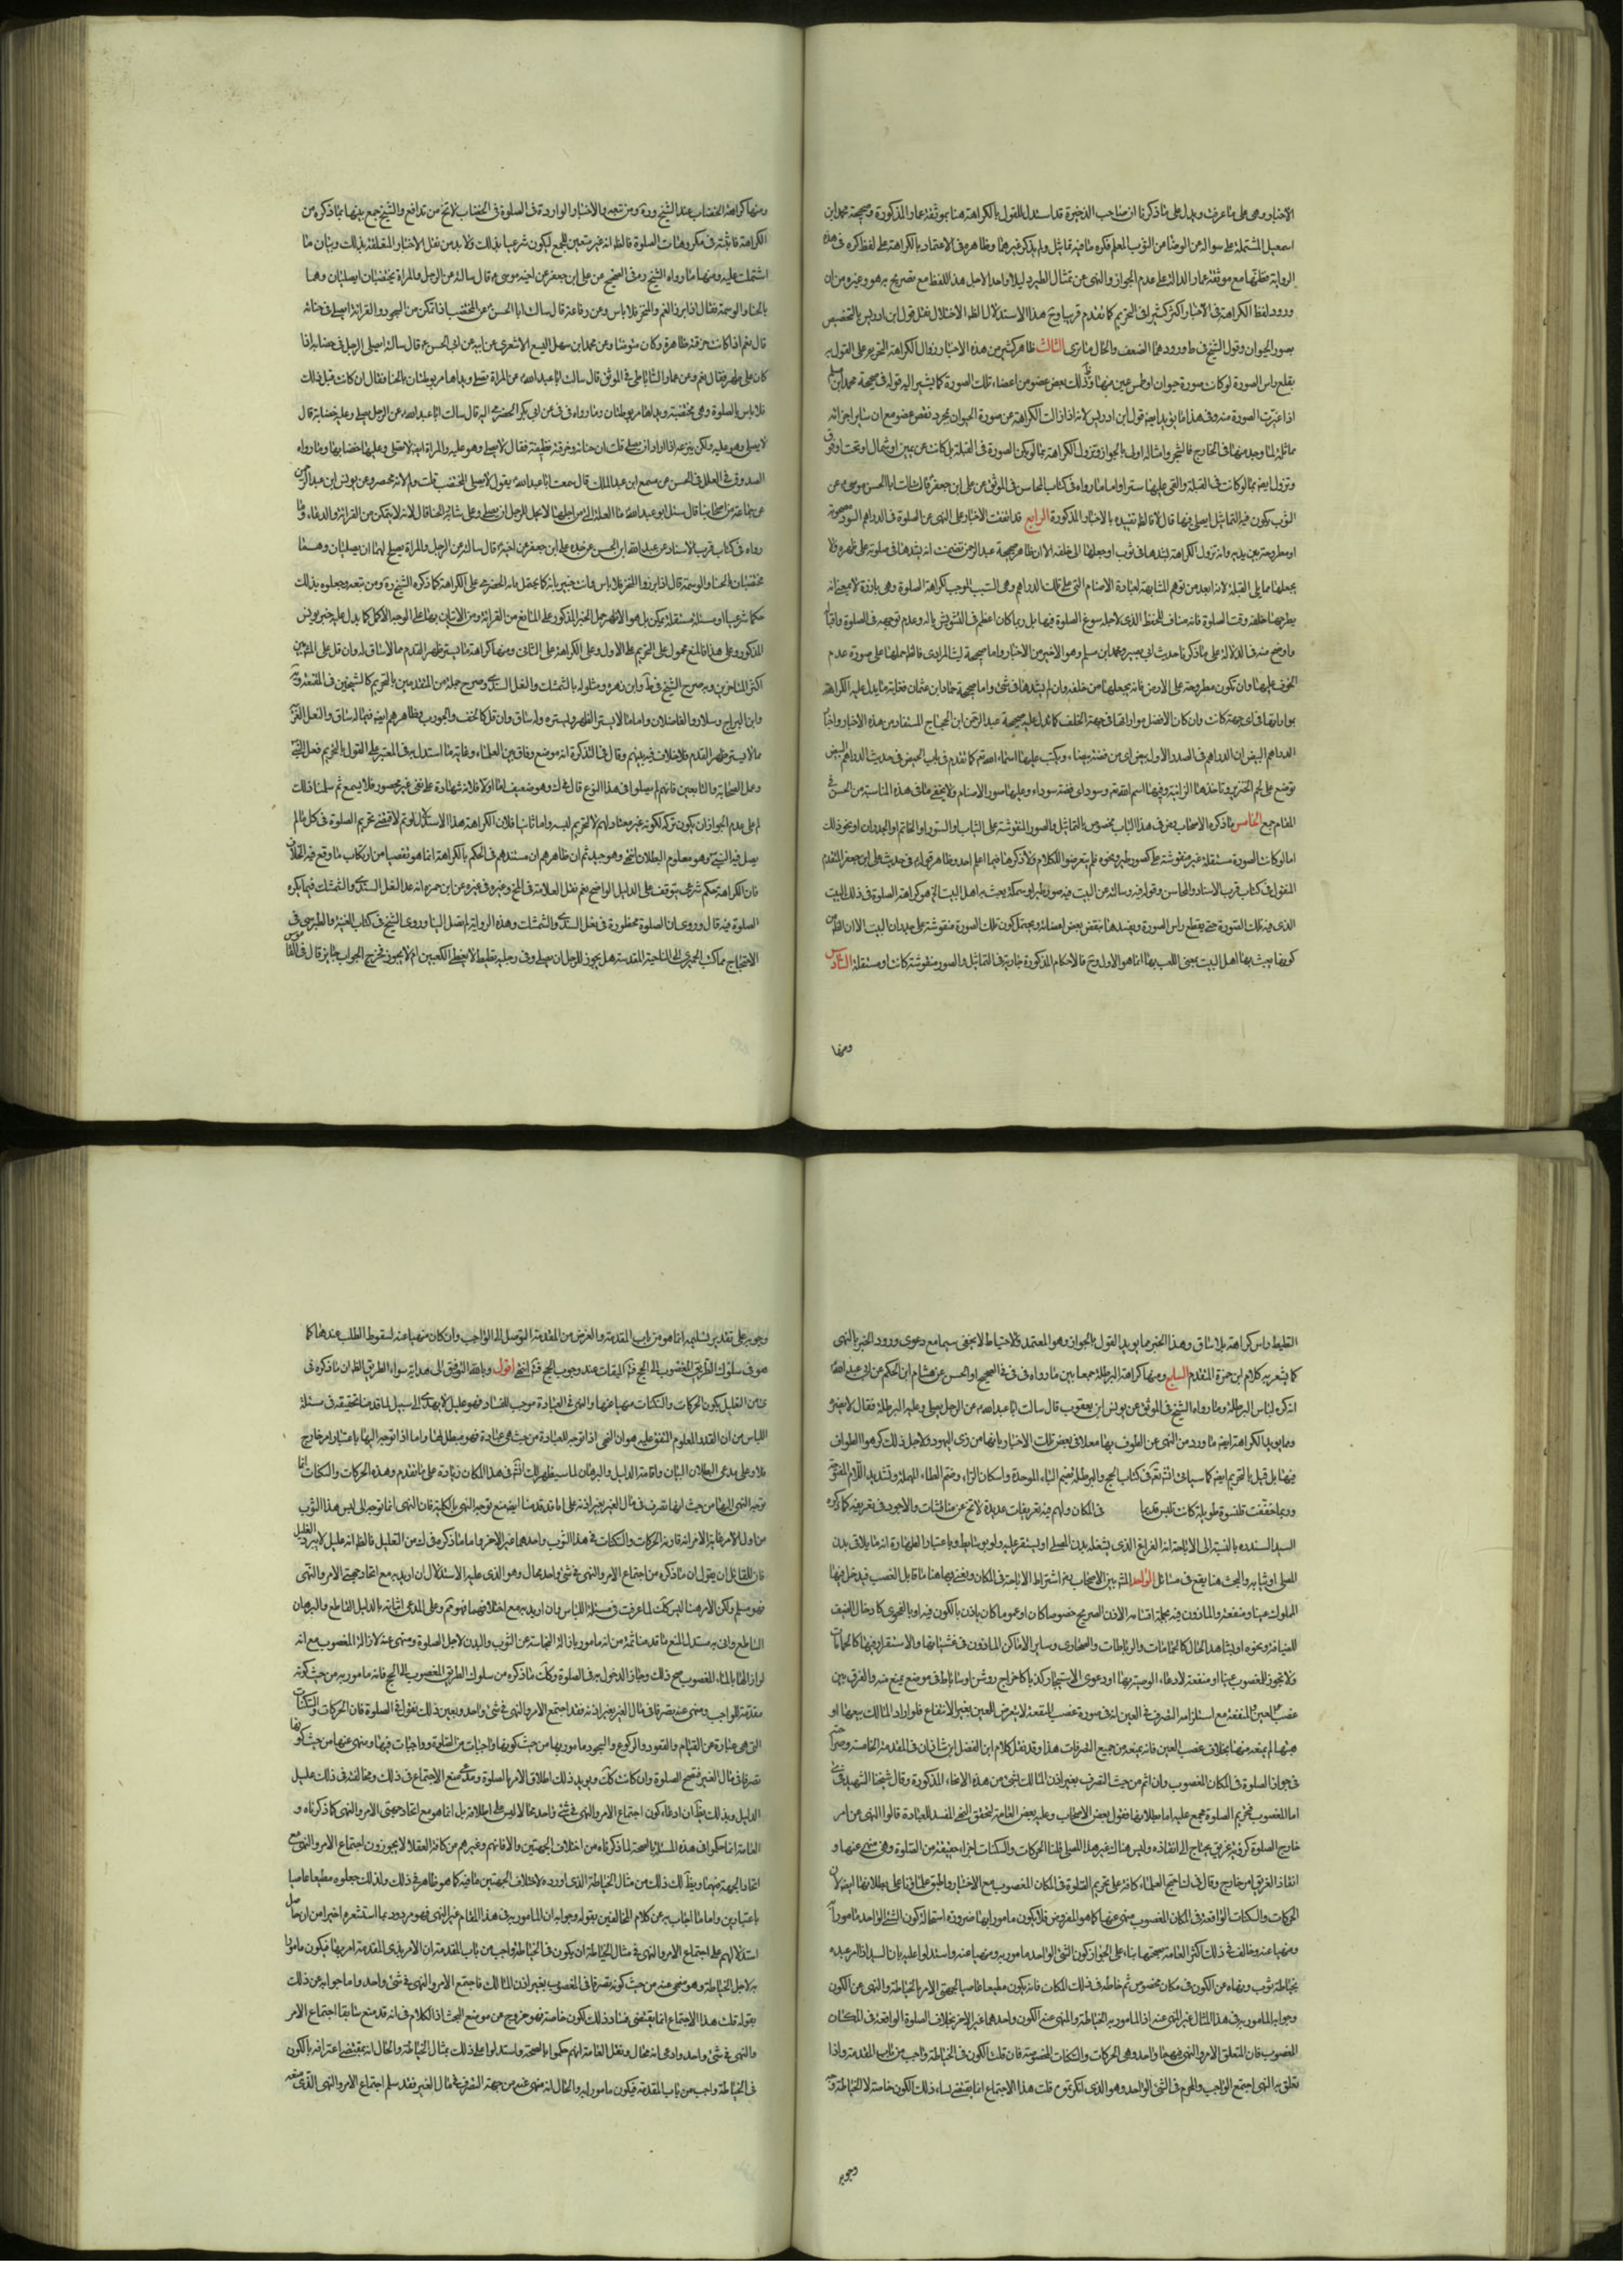 الاخبار وهى على ما عرفت ويدل على ما ذكرنا ان صاحب الذخيرة قد استدل للقول بالكراهة هنا بموثقة عمار المذكورة وصحيحة محمد ابن
اسمعيل المشتملة على سواله عن الوضا من الثوب المعلم فكره ما فيه تماثيل ولم يذكر غيرهما وظاهره الاعتماد بالكراهة على لفظ كره فى هذه
الرواية مع موثقة عمار الدالة على عدم الجواز والنهى عن تمثال الطير دليلا واحدا لاجل هذا اللفظ مع تصريح هو وغيره من ان
ورود لفظ الكراهة فى الاخبار اكثر كثير فى التحريم كما تقدم قريبا وح هذا الاستدلال لنقل قول ابن ادريس بالتخصيص
بصور الحيوان وقول الشيخ فى ط ورودهما الضعف والحال ما ترى الثالث ظاهر كثير من هذه الاخبار زوال الكراهة التحريم على القول به
بقلع راس الصورة لو كانت صورة حيوان او طمس عين منها وكذلك بعض عضو من اعضاء تلك الصورة كما يشير اليه قوله فى صحيحة محمد ابن مسلم
اذا غيرت الصورة منه وفى هذا ما يؤيد ايضا قول ابن ادريس لانه اذا زالت الكراهة عن صورة الحيوان بمجرد نقص عضو مع ان ساير اجزائه
مماثلة لما وجد منها فى الخارج فالشجر وامثاله اولى بالجواز وتزول الكراهة بما لو يكن الصورة فى القبلة بل كانت عن يمين او شمال او تحت او فوق
وتزول ايضا بما لو كانت فى القبلة والقى عليها ستر او اما ما رواه فى كتاب المحاسن فى الموثق عن على ابن جعفر قال سالت ابا الحسن موسى ع عن
الثوب يكون فيه التماثيل ايصلى فيها قال لا فالظ تقييده بالاخبار المذكورة الرابع قد اتفقت الاخبار على النهى عن الصلوة فى الدراهم السود مصحوبة
او مطروحة بين يديه وانه تزول الكراهة بشدها فى ثوب او جعلها الى خلفه الا ان ظاهر صحيحة عبد الرحمن تضمنت انه يشدها فى صلوته على ظهره ولا
يجعلها مما يلى القبلة لانه ابعد من توهم المشابهة لعبادة الاصنام التى على تلك الدراهم وهى السبب الموجب لكراهة الصلوة وهى بارزة لا معنى انه
يطرحها خلفه وقت الصلوة فانه مناف للحفظ الذى لاجله سوغ الصلوة فيها بل ربما كان اعظم فى التشويش باله وعدم توجهه فى الصلوة واقباله
واوضح منه فى الدلالة على ما ذكرنا حديث ابى بصير ومحمد ابن مسلم وهو الاخير من الاخبار واما صحيحة ليث المرادى فالظ حملها على صورة عدم
الخوف عليها وان تكون مطروحة على الارض فانه يجعلها من خلفه وان لم يشدها فى شئ واما صحيحة حماد ابن عثمان فغاية ما يدل عليه الكراهة
بمواراتها فى اى جهة كانت وان كان الافضل مواراتها فى جهة الخلف كما تدل عليه صحيحة عبد الرحمن ابن الحجاج المستفاد من هذه الاخبار
الدراهم البيض ان الدراهم فى الصدر الاول بيض اى من فضة بيضاء ويكتب عليها اسماء الله تم كما تقدم فى باب الحيض فى حديث الدراهم البيض
توضع على لحم الخنزير وتاخذها الزانية وفيها اسم الله وسود اى فضة سوداء وعليها صور الاصنام ولا يخفى ما فى هذه المناسبة من الحسن فى
المقام جميع الخامس ما ذكره الاصحاب رض فى هذا الباب مخصوص بالتماثيل والصور المنقوشة على الثياب والستور او الخاتم او الجدران او نحو ذلك
اما لو كانت الصورة مستقلة غير منقوشة على كصور طير ونحوه فلم يتعرضوا للكلام ولا ذكر هنا فيما اعلم احد وظاهر قوله فى حديث على ابن جعفر المتقدم
المنقول فى كتاب قرب الاسناد والمحاسن وقوله فيه وسالته عن البيت فيه صورة طير او سمكة يعبث به اهل البيت هو كراهة الصلوة فى ذلك البيت
الذى فيه تلك الصورة حتى يقطع راس الصورة ويفسدها بنقص بعض اعضائه ويحتمل كون تلك الصورة منقوشة على جدران البيت الا ان الظ من
كونها يعبث بها اهل البيت بمعنى اللعب بها انما هو الاول وح فالاحكام المذكورة جارية فى التماثيل والصور منقوشة كانت او مستقلة السادس
ومنها
ومنها كراهة الخضاب عند الشيخ ره ومن تبعه والاخبار الواردة فى الصلوة فى الخضاب لا تخ من تدافع والشيخ جمع بينها بما ذكره من
الكراهة فى مكروهات الصلوة فالظ انه غير متعين للجمع ليكون شرعيا بذلك ولا بد من نقل الاخبار المتعلقة بذلك وبيان ما
اشتملت عليه ومنها ما رواه الشيخ ره فى الصحيح عن على ابن جعفر عن اخيه موسى ع قال سالته عن الرجل والمراة يختضبان ايصليان وهما
بالحنا والوسمة فقال اذا برز الفم والمنخر فلا باس وعن رفاعة قال سالت ابا الحسن ع عن المختضب اذا تمكن من السجود والقرائة ايصلى فى حنائه
قال نعم اذا كانت خرقته طاهرة وكان متوضئا وعن محمد ابن سهل اليسع الاشعرى عن ابيه عن ابى الحسن ع قال سالته ايصلى الرجل فى خضابه اذا
كان على طهر فقال نعم وعن عمار الساباطى فى الموثق قال سالت ابا عبد الله ع عن المراة تصلى ويداها مربوطتان بالحنا فقال ان كانت قبل ذلك
فلا باس بالصلوة وهى مختضبة ويداها مربوطتان وما رواه فى فى عن ابى بكر الحضرمى قال سالت ابا عبد الله ع عن الرجل يصلى وعليه خضابه قال
لا يصلى وهو عليه ولكن ينزعه اذا اراد ان يصلى قلت ان حناه وخرقته نظيفة فقال لا يصلى وهو عليه والمراة ايضا لا تصلى وعليها خضابها وما رواه
الصدوق فى العلل فى الحسن عن مسمع ابن عبد الملك قال سمعت ابا عبد الله ع يقول لا يصلى المختضب قلت ولم لانه محصر وعن يونس ابن عبد الرحمن
عن جماعة من اصحابنا قال سئل ابو عبد الله ع ما العلة التى من اجلها لا يحل للرجل ان يصلى وعلى شاربه الحنا قال لانه لا يتمكن من القرائة والدعاء وما
رواه فى كتاب قرب الاسناد عن عبد الله ابن الحسن عن جده على ابن جعفر عن اخيه ع قال سالته عن الرجل والمراة يصلح لهما ان يصليان وهما
مختضبان بالحنا والوسمة قال اذا برز الفم والمنخر فلا باس وانت خبير بانه كما يحتمل على الكراهة كما ذكره الشيخ ره ومن تبعه وجعلوه بذلك
حكما شرعيا او مسئلة مستقلة يمكن بل هو الاظهر حمل الخبر المذكور على المانع من القرائة ومن الاتيان بها على الوجه الاكمل كما يدل عليه خبر يونس
المذكور وعلى هذا فالمنع محمول على التحريم على الاول وعلى الكراهة على الثانى ومنها كراهة ما يستر ظهر القدم مما لا ساق له وان قل على المشهور بين
اكثر المتاخرين وبه صرح الشيخ فى ط وابن زهره ومثلوا له بالشمشك والنعل السندى وصرح جملة من المتقدمين بالتحريم كالشيخين فى المقنعة ويه
وابن البراج وسلار والفاضلان واما ما لا يستر الظهر او يستره وله ساق وان قل كالخف والجورب وظاهرهم ايضا فيما له ساق والنعل العربى
مما لا يستر ظهر القدم فلا خلاف فيه بينهم وقال فى التذكرة انه موضع وفاق بين العلماء وغاية ما استدل به فى المعتبر على القول بالتحريم فعل النبى ص
وعمل الصحابة والتابعين فانهم لم يصلوا فى هذا النوع قال فى ك وهو ضعيف اما اولا فلانه شهادة على نفى غير محصور فلا يسمع ثم سلمنا ذلك
لم يدل على عدم الجواز ان يكون تركه لكونه غير معتاد لهم لا لتحريم لبسه واما ثانيا فلان الكراهة هذا الاستدلال لو تم لاقتضى تحريم الصلوة فى كل ما لم
يصل فيه النبى ص وهو معلوم البطلان انتهى وهو جيد ثم ان ظاهرهم ان مستندهم فى الحكم بالكراهة انما هو التفصى من ارتكاب ما وقع فيه الخلاف
فان الكراهة حكم شرعى يتوقف على الدليل الواضح نعم نقل العلامة فى المخ وغيره عن ابن حمزه انه عد النعل السندى والشمشك فيما يكره
الصلوة فيه قال وروى ان الصلوة محظورة فى نعل السندى والشمشك وهذه الرواية لم تصل الينا وروى الشيخ فى كتاب الغيبة والطبرسى فى
الاحتجاج مما كتب الحميرى الى الناحية المقدسة هل يجوز للرجل ان يصلى وفى رجليه بطيط لا يغطى الكعبين ام لا يجوز فخرج الجواب جايز قال فى القاموس
البطيط راس الخف بلا ساق وهذا الخبر مما يؤيد القول بالجواز وهو المعتمد والاحتياط لا يخفى سيما مع دعوى ورود الخبر بالنهى
كما يشعر به كلام ابن حمزة المتقدم السابع ومنها كراهة البرطلة جمعا بين ما رواه فى فى فى الصحيح او الحسن عن هشام ابن الحكم عن ابى عبد الله ع
انه كره لباس البرطلة وما رواه الشيخ فى الموثق عن يونس ابن يعقوب قال سالت ابا عبد الله ع عن الرجل يصلى وعليه البرطلة فقال لا يضره
ومما يؤيد الكراهة ايضا ما ورد من النهى عن الطوف بها معللا فى بعض تلك الاخبار بانها من زى اليهود ولاجل ذلك كرهوا الطواف
فيها بل قيل بالتحريم ايضا كما سياتى انش تعم فى كتاب الحج والبرطلة بضم الباء الموحدة واسكان الراء وضم الطاء المهملة وتشديد اللام المفتوحة
وربما خففت قلنسوة طويلة كانت تلبس قديما فى المكان ولهم فيه تعريفات عديدة لا تخ عن مناقشات والاجود فى تعريفه كما ذكره
السيد السند ره بالنسبة الى الاباحة انه الفراغ الذى يشغله بدن المصلى او يستقر عليه ولو بوسائط وباعتبار الطهارة انه ما يلاقى بدن
المصلى او ثيابه والبحث هنا يقع فى مسائل الاولى المشهور بين الاصحاب رض اشتراط الاباحة فى المكان ويعنى بها هنا ما قابل الغصب فيدخل فيها
المملوك عينا ومنفعة والماذون فيه بجملة اقسامه الاذن الصريح خصوصا كان او عموما كان باذن بالكون فيه او بالفحوى كادخال الضيف
للضيافة ونحوه او بشاهد الحال كالحمامات والرباطات والصحارى وساير الاماكن الماذون فى غشيانها والاستقرار فيها كالخانات
ولا تجوز للمغصوب عينا او منفعة لادعاء الوصية بها او دعوى الاستيجار كذبا كاخراج روشن او ساباط فى موضع يمنع منه والفرق بين
غصب العين او المنفعة مع استلزامه التصرف فى العين انه فى صورة غصب المنفعة لا يتعرض للعين بغير الانتفاع فلو اراد المالك بيعها او
هبتها لم يمنعه منها بخلاف غصب العين فانه يمنعه من جميع التصرفات هذا وقد نقل كلام ابن الفضل ابن شاذان فى المقدمة الخامسة وصراحته
فى جواز الصلوة فى المكان المغصوب وان اثم من حيث التصرف بغير اذن المالك لشئ من هذه الانحاء المذكورة وقال شيخنا الشهيد فى
اما المغصوب فتحريم الصلوة مجمع عليه اما بطلانها فقول بعض الاصحاب وعليه بعض العامة لتحقق النهى المفسد للعبادة قالوا النهى عن امر
خارج الصلوة كرؤية غريق يحتاج الى انقاذه وليس هناك غير هذا المصلى قلنا الحركات والسكنات اجزاء حقيقة من الصلوة وهى منهى عنها و
انقاذ الغريق امر خارج وقال فى ك اجمع العلماء كافة على تحريم الصلوة فى المكان المغصوب مع الاختيار واطبق علماؤنا على بطلانها ايضا لان
الحركات والسكنات الواقعة فى المكان المغصوب منهى عنها كما هو المفروض فلا يكون مامورا بها ضرورة استحالة كون الشئ الواحد مامورا به
ومنهيا عنه وخالف فى ذلك اكثر العامة بصحتها بناء على جواز كون الشئ الواحد مامورا به ومنهيا عنه واستدلوا عليه بان السيد اذا امر عبده
بخياطة ثوب ونهاه عن الكون فى مكان مخصوص ثم خاطه فى ذلك المكان فانه يكون مطيعا عاصيا لجهتى الامر بالخياطة والنهى عن الكون
وجوابه المامور به فى هذا المثال غير المنهى عنه اذ المامور به الخياطة والمنهى عنه الكون واحدهما غير الاخر بخلاف الصلوة الواقعة فى المكان
المغصوب فان المتعلق الامر والنهى فيهما واحد وهى الحركات والسكنات المخصوصة فان قلت الكون فى الخياطة واجب من باب المقدمة واذا
تعلق به النهى اجتمع الواجب والمحرم فى الشئ الواحد وهو الذى انكرتموه قلت هذا الاجتماع انما يقتضى فساد ذلك الكون خاصة لا الخياطة
وجوبه
وجوبه على تقدير تسليمه انما هو من باب المقدمة والغرض من المقدمة التوصل الى الواجب وان كان منهيا عنه لسقوط الطلب عندها كما
هو فى سلوك الطريق المغصوب الى الحج الى الميقات عند وجوب الحج انتهى اقول وبالله التوفيق الى هداية سواء الطريق الظ ان ما ذكره فى
من التعليل بكون الحركات والسكنات منهيا عنها والنهى فى العبادة موجب للفساد فهو عليل لا يهدى الى سبيل لما قدمنا تحقيقه فى مسئلة
اللباس من ان القدر المعلوم المتفق عليه هو ان النهى اذا توجه للعبادة من حيث هى عبادة فهو مبطل لها واما اذا توجه اليها باعتبار امر خارج
فلا وعلى مدعى البطلان البيان واقامة الدليل والبرهان لما سيظهر لك انش فى هذا المكان زيادة على ما تقدم وهذه الحركات والسكنات انما
توجه النهى اليها من حيث انها تصرف فى مال الغير بغير اذنه على ما قد قدمنا ايضا منع توجه النهى بالكلية فان النهى انما توجه الى لبس هذا الثوب
من اول الامر غاية الامر انه قارنه الحركات والسكنات فى هذا الثوب واحدهما غير الاخر واما ما ذكره فى ك من التعليل فالظ انه عليل لا يبرد الغليل
فان للقائل ان يقول ان ما ذكره من اجتماع الامر والنهى فى شئ واحد محال وهو الذى عليه الاستدلال ان اريد به مع اتحاد جهتى الامر والنهى
فهو مسلم ولكن الامر هنا ليس كذلك لما عرفت فى مسئلة اللباس وان اريد به مع اختلافهما فهو مم وعلى المدعى اثباته بالدليل القاطع والبرهان
الساطع وانى به مستدل المنع ما قدمنا ثمة من انه مامور بازالة النجاسة عن الثوب والبدن لاجل الصلوة ومنهى عنه لازالة المغصوب مع انه
لو ازالها بالماء المغصوب صح ذلك وجاز الدخول به فى الصلوة وكذلك ما ذكره من سلوك الطريق المغصوب الى الحج فانه مامور به من حيث كونه
مقدمة للواجب ومنهى عنه بصرفا فى مال الغير بغير اذنه فقد اجتمع الامر والنهى فى شئ واحد وبعين ذلك نقول فى الصلوة فان الحركات والسكنات
التى هى عبارة عن القيام والقعود والركوع والسجود مامور بها من حيث كونها واجبات من الصلوة وواجبات فيها ومنهى عنها من حيث كونها
تصرفا فى مال الغير فتصح الصلوة وان كانت كذلك ويؤيد ذلك اطلاق الامر بالصلوة ومدعى منع الاجتماع فى ذلك ومخالفته فى ذلك عليه
الدليل وبذلك يظهر ان ادعاء كون اجتماع الامر والنهى فى شئ واحد محالا ليس على اطلاقه بل انما هو مع اتحاد جهتى الامر والنهى كما ذكرناه و
العامة انما حكموا فى هذه المسئلة بالصحة لما ذكرناه من اختلاف الجهتين والا فانهم وغيرهم من كافة العقلاء لا يجوزون اجتماع الامر والنهى مع
اتحاد الجهة فيهما ويدلك ذلك من مثال الخياطة الذى اورده لاختلاف الجهتين ما فيه كما هو ظاهر فى ذلك ولذلك جعلوه مطيعا عاصيا
باعتبارين واما ما اجاب به عن كلام المخالفين بقوله وجوابه ان المامور به فى هذا المقام غير النهى فهو مردود بما استشعره اخيرا من ان حاصل
استدلالهم على اجتماع الامر والنهى فى مثال الخياطة ان يكون فى الخياطة واجب من باب المقدمة ان الامر بذى المقدمة امر بها فيكون مامورا
به لاجل الخياطة وهو منهى عنه من حيث كونه تصرفا فى المغصوب بغير اذن المالك فاجتمع الامر والنهى فى شئ واحد واما جوابه عن ذلك
بقوله قلت هذا الاجتماع انما يقتضى فساد ذلك الكون خاصة فهو خروج عن موضع البحث اذ الكلام فى انه قد منع سابقا اجتماع الامر
والنهى فى شئ واحد وادعى انه محال ونقل العامة انهم حكموا بالصحة واستدلوا على ذلك بمثال الخياطة والحال انه بمقتضى اعترافه بالكون
فى الخياطة واجب من باب المقدمة فيكون مامورا به والحال انه منهى عنه من جهة التصرف فى مال الغير فقد سلم اجتماع الامر والنهى الذى منعه